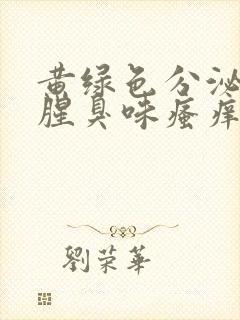 黄绿色分泌
腥臭味瘙痒
劉荣華